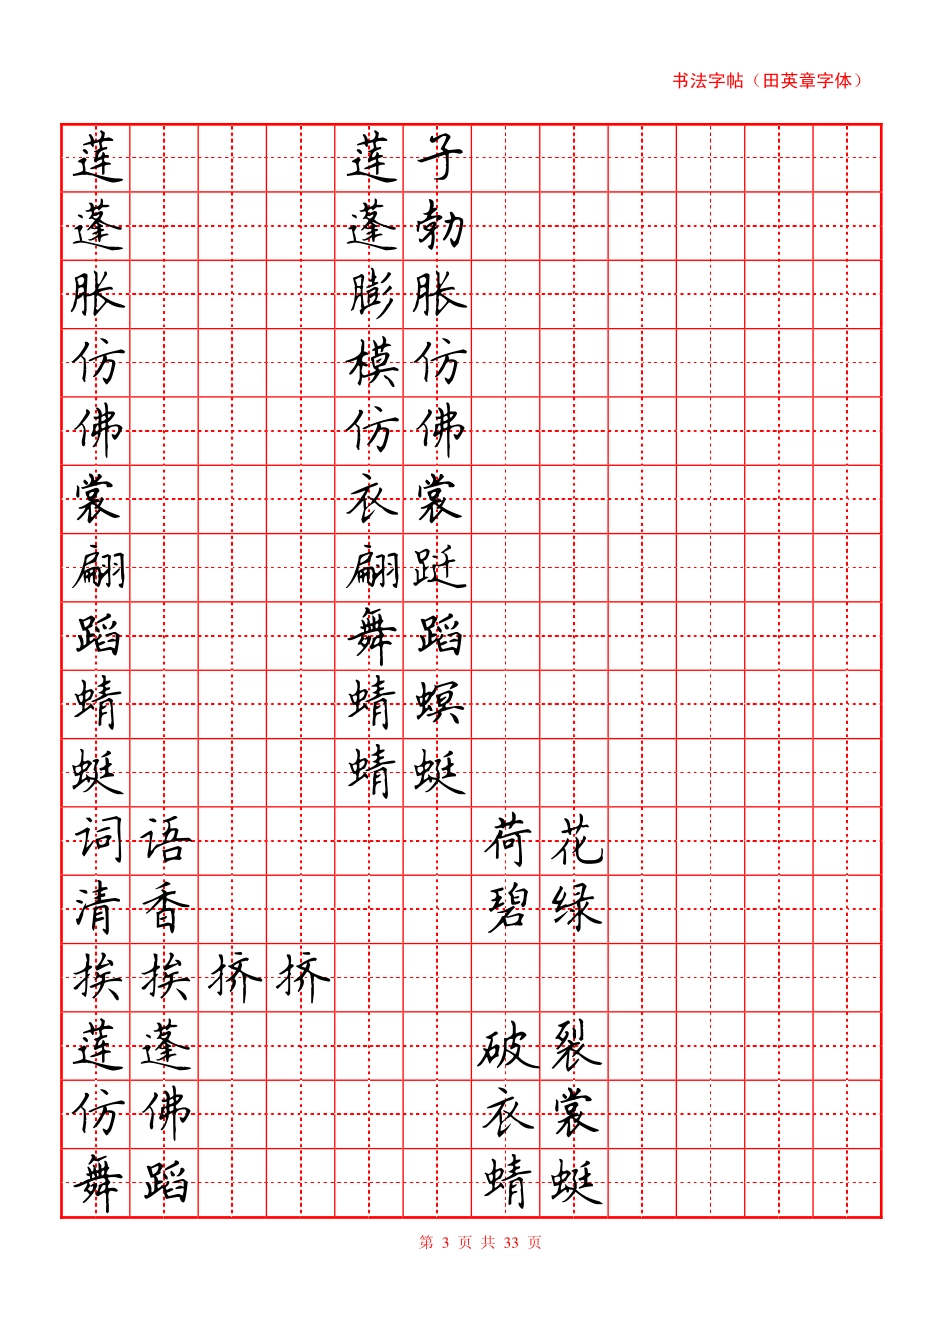 书法字帖（田英章字体）
莲 莲子
蓬 蓬勃
胀 膨胀
仿 模仿
佛 仿佛
裳 衣裳
翩 翩跹
蹈 舞蹈
蜻 蜻螟
蜓 蜻蜓
词语 荷花
清香 碧绿
挨挨挤挤
莲蓬 破裂
仿佛 衣裳
舞蹈 蜻蜓
第 3 页 共 33 页